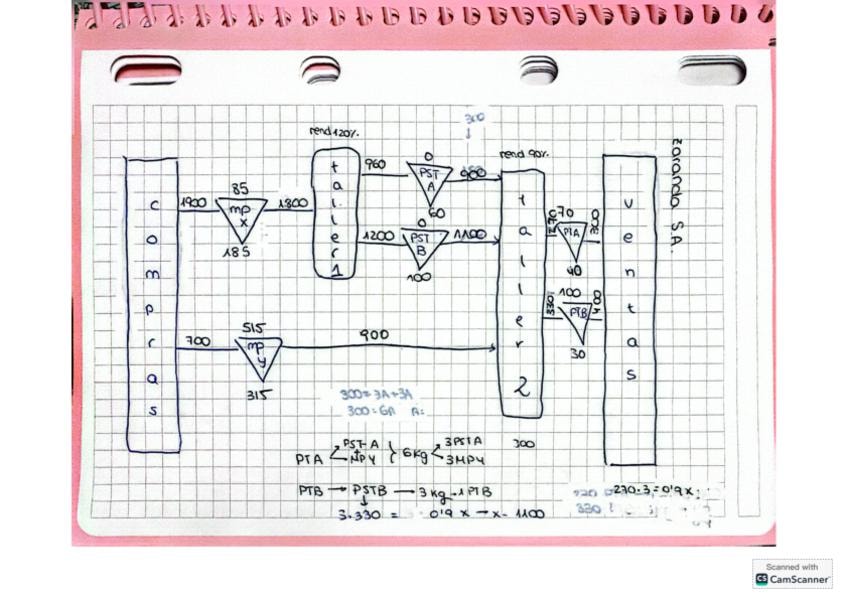 300
rend 120%.
rend 90%.
zorando S.A.
compras
1900
85
mp x
185
1800
taller 1
960
0
PST A
60
900
1200
0
PST B
100
1100
taller 2
300
270
70
PTA
40
300
330
100
PTB
30
400
ventas
700
515
mp y
315
900
300=3A+3A
300=6A A=
PTA PST-A + MPY } 6kg 3PSTA 3MPY
PTB → PSTB — 3kg 1 PTB
3.330 = 0'9 x → x= 1100
270.3=0'9 x
330
Scanned with
CS CamScanner